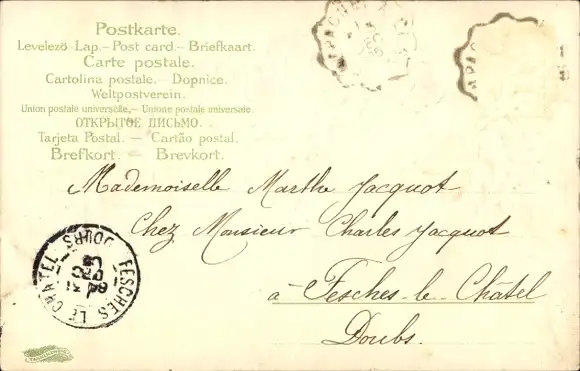 Postkarte.
Levelezö-Lap.- Post card.- Briefkaart.
Carte postale.
Cartolina postale.- Dopnice.
Weltpostverein.
Union postale universelle.- Unione postale universale.
ОТКРЫТОЕ ПИСЬМО.
Tarjeta Postal. - Cartão postal.
Brefkort. - Brevkort.
Mademoiselle Marthe Jacquot
Chez Monsieur Charles Jacquot
à Fesches-le-Châtel
Doubs.
FESCHES LE CHATEL DOUBS